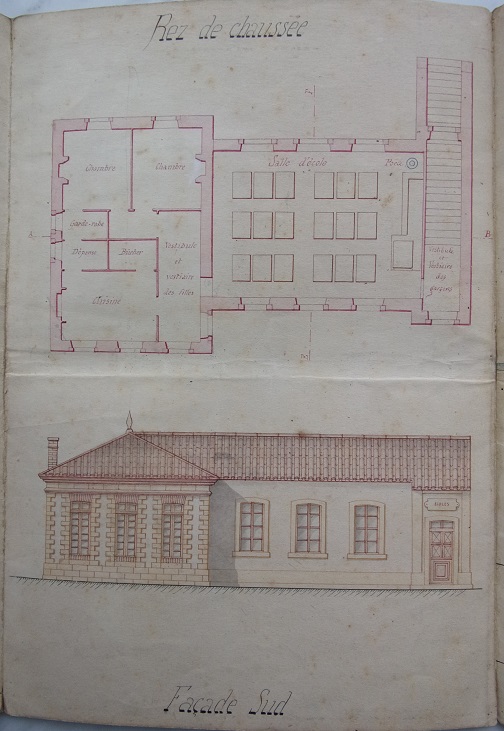 Rez de chaussée
Chambre
Chambre
Salle d'école
Garde-robe
Dépense
Vestibule
et
vestiaire
des filles
Cuisine
Vestibule
et
Vestiaire
des
garçons
B
Façade Sud